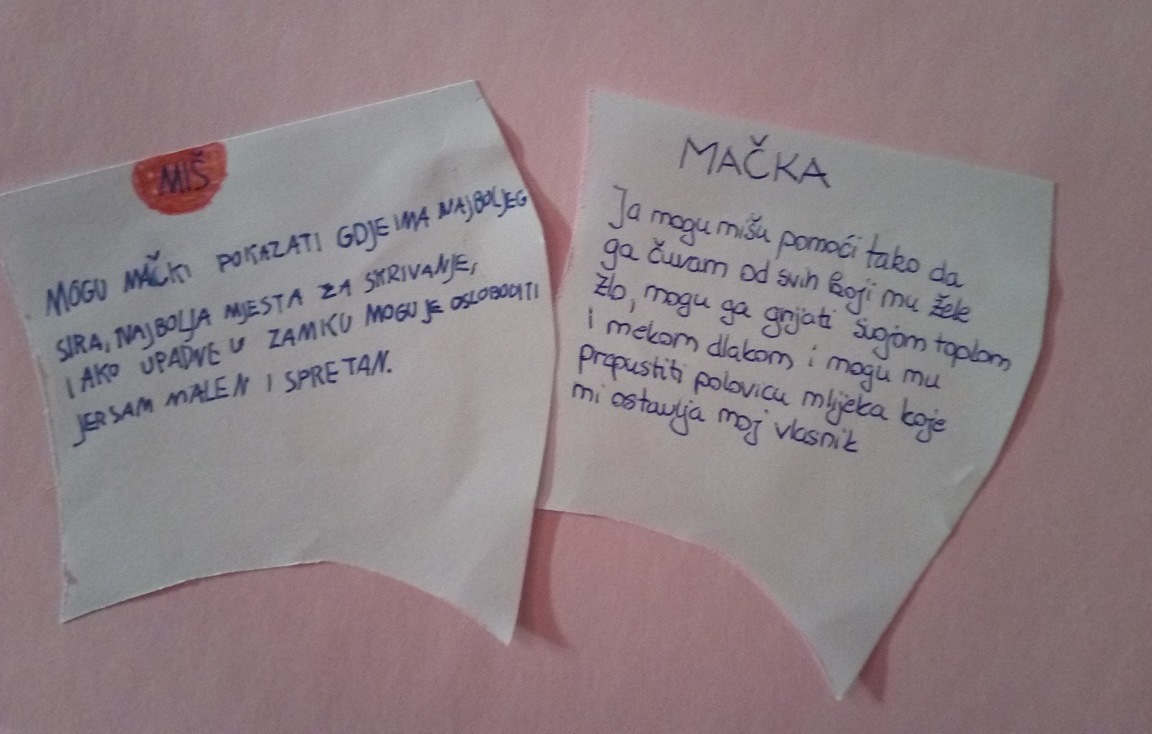 MIŠ
MOGU MAČKI POKAZATI GDJE IMA NAJBOLJEG
SIRA, NAJBOLJA MJESTA ZA SKRIVANJE,
I AKO UPADNE U ZAMKU MOGU JE OSLOBODITI
JER SAM MALEN I SPRETAN.
MAČKA
Ja mogu mišu pomoći tako da
ga čuvam od svih koji mu žele
zlo, mogu ga grijati svojom toplom
i mekom dlakom i mogu mu
prepustiti polovicu mlijeka koje
mi ostavlja moj vlasnik